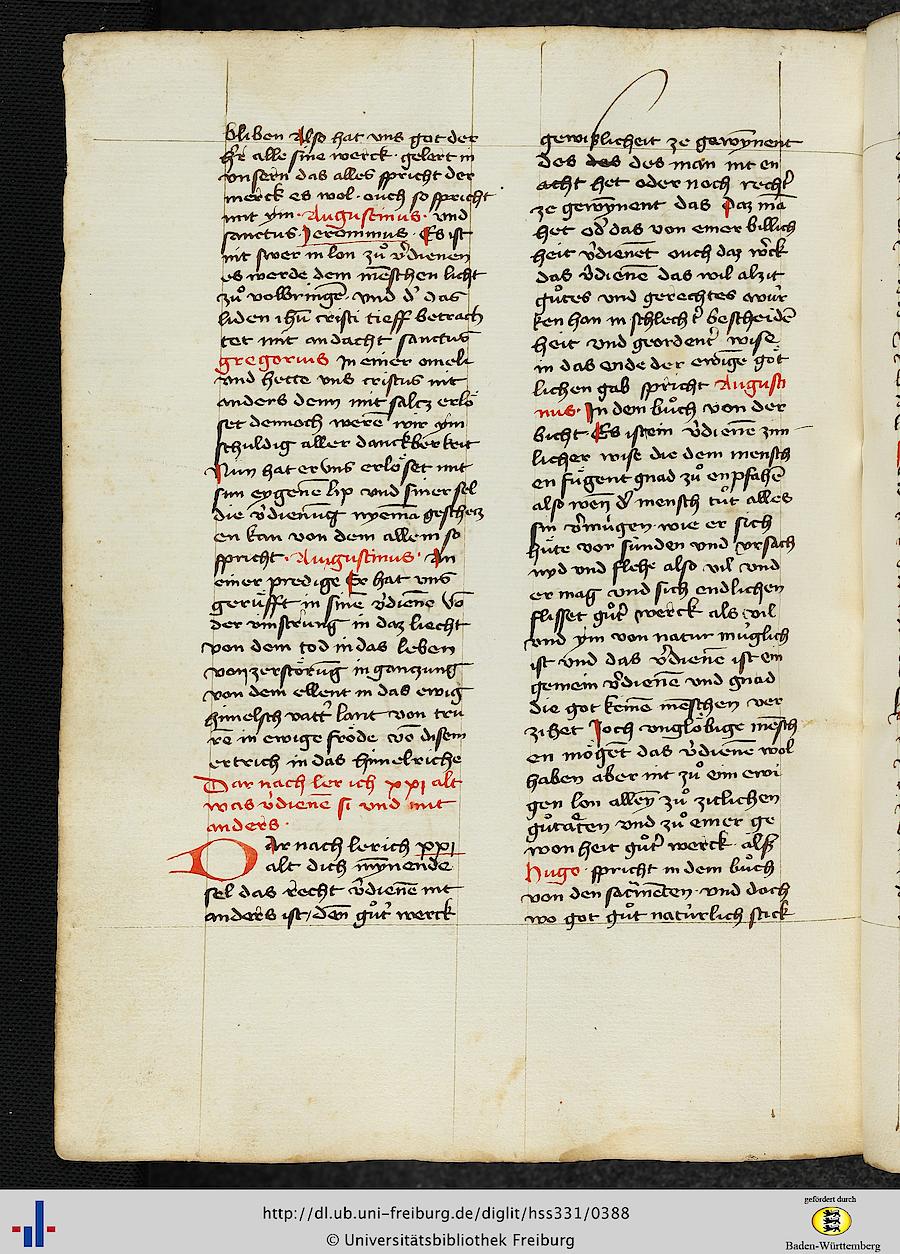 bliben Also hat vns got der
h̄r alle sine werck · gelert in
vnsern das alles spricht der
merck es wol · ouch so spricht
mit ym · Augustinus · vnd
sanctus · Jeronimus · Es ist
nit swer in lon zů v̄dienen
es werde dem mēschen licht
zů volbringē · vnd d' das
liden ihū cristi tieff betrach
tet mit andacht sanctus
gregorius In einer omeli
vnd hette vns cristus nit
anders denn mit salcz erlö
set dennoch werē wir ym
schuldig aller danckberkeit
Nun hat er vns erlöset mit
sim eygenē lip vnd siner sel
die v̄dienūg nyemā
en kan von dem allem so
spricht · Augustinus · In
einer predige Er hat vns
gerüfft in sinē v̄dienē vō
der vinstrūng in daz liecht
von dem tod in das leben
von zerstörūg in ganczung
von dem ellent in das ewig
himelsch vatt' lant von tru
rē in ewige fröde vō disem
ertrich in das himelriche
Dar nach ler ich xxj alt
was v̄dienē si vnd nit
anders ·
DAr nach ler ich xxj
alt dich mynende
sel das recht v̄dienē nit
anders ist · den gůt' werck
gewißlicheit ze gewynent
des des des man nit en
acht het oder noch recht'
ze gewynent das Daz mā
het od' das von einer billich
heit v̄dienet ouch daz w'ck
das v̄dienē das wil alzit
gůtes vnd gerechtes wür
ken han in schlecht' bescheidē
heit vnd geordent' wise
in das ende der ewigē göt
lichen gab spricht Augusti
nus · In dem bůch von der
bicht Es ist ein v̄dienē zim
licher wise die dem mensch
en fůgent gnad zů enpfahē
also wen d' mensch tůt alles
sin v̄mügen · wie er sich
hüte vor sünden vnd vrsach
nyd vnd fliche also vil vnd
er mag vnd sich endlichen
flisset gůt' werck als vil
vnd ym von natur müglich
ist vnd das v̄dienē ist ein
gemein v̄dienēn vnd gnad
die got keinē meschen ver
zihet Joch vnglöbige mēsch
en mögēt das v̄dienē wol
haben aber nit zů eim ewi
gen lon allein zů zitlichen
gůtatēn vnd zů einer ge
wonheit gůt' werck · als
Hugo · spricht in dem bůch
von den sacrmēten · vnd doch
wo got gůt natürlich stick
http://dl.ub.uni-freiburg.de/diglit/hss331/0388
© Universitätsbibliothek Freiburg
gefördert durch
Baden-Württemberg